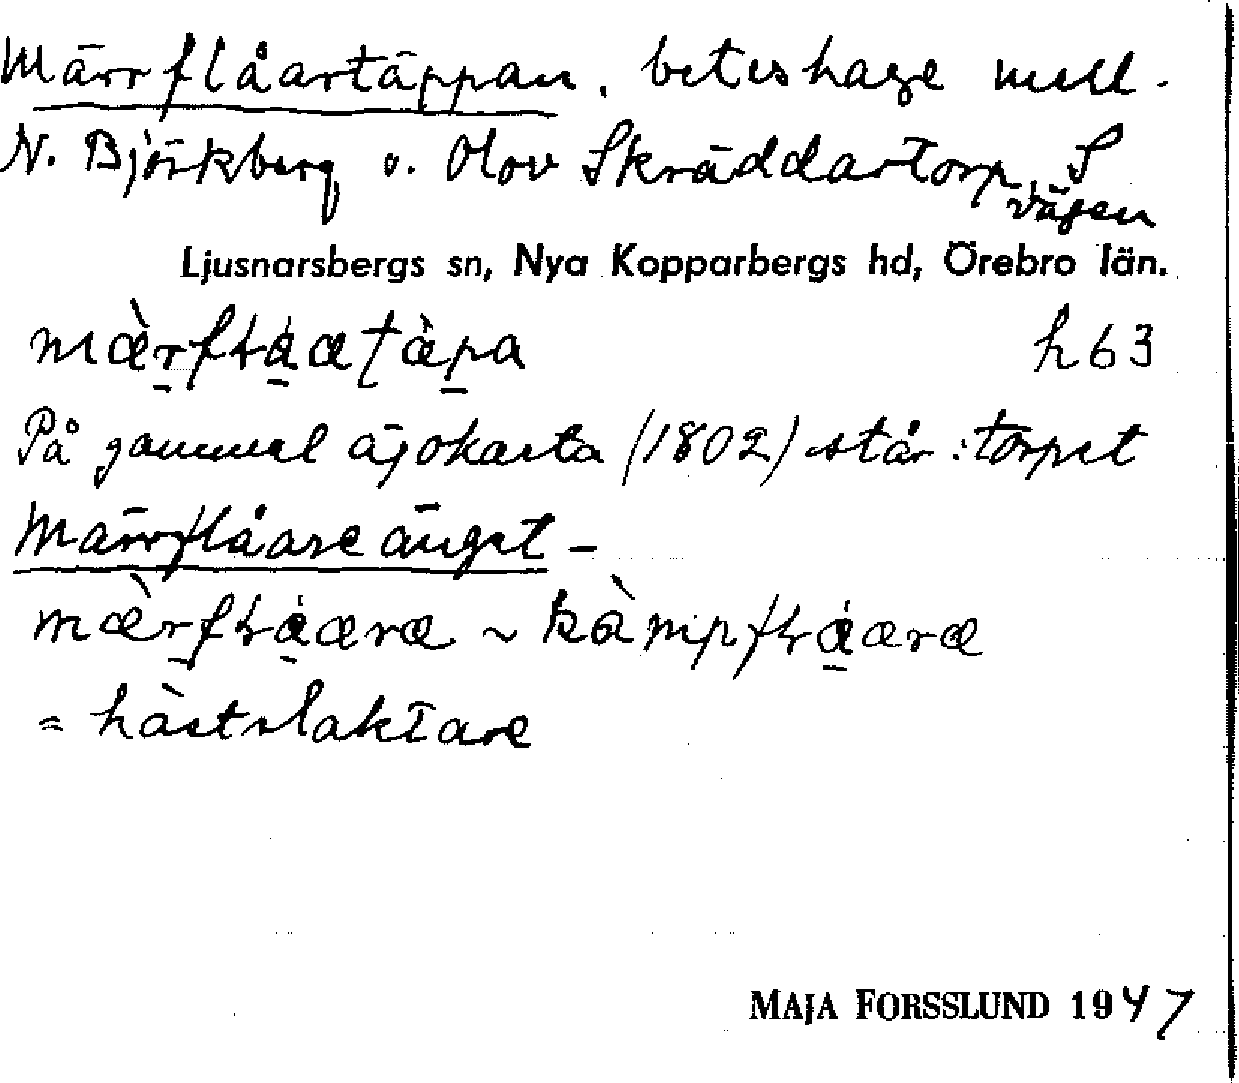 Märrflåartäppan, beteshage mell.
N. Björkberg o. Olov Skräddartorp, S
vägen
Ljusnarsbergs sn, Nya Kopparbergs hd, Örebro län.
h63
På gammal ägokarta (1802) står: torpet
Märrflåare änget –
= hästslaktare
MAJA FORSSLUND 1947